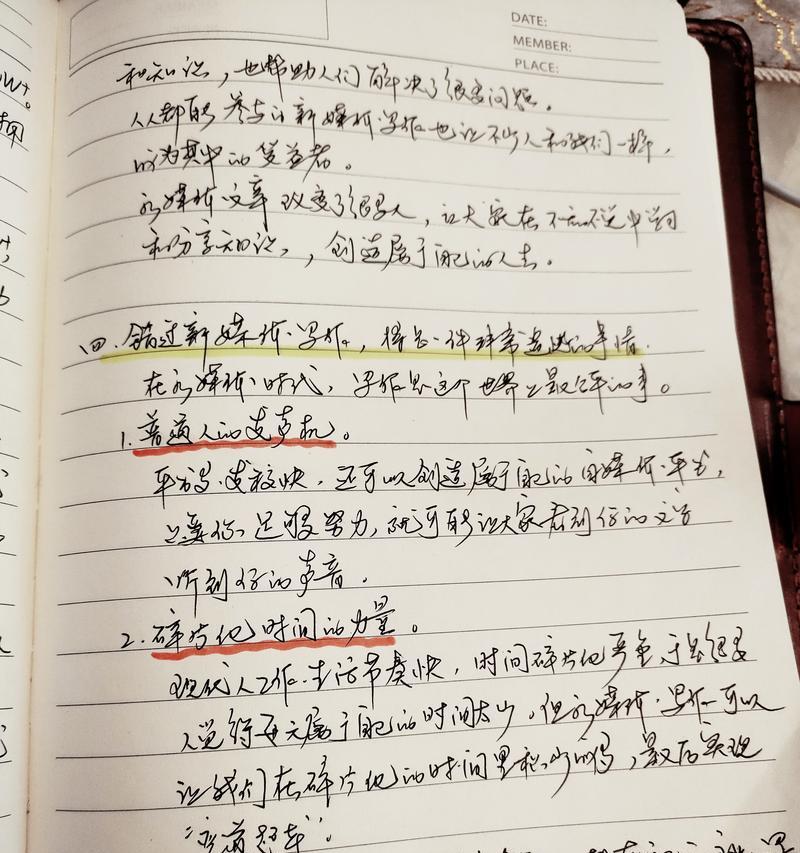 DATE:
MEMBER:
PLACE:
和知识，也帮助人们解决了很多问题。
人人都能参与的新媒体写作也让不少人和我们一样，
成为其中的受益者。
新媒体文章改变了很多人，让大家在不知不觉中学习
和分享知识，创造属于自己的人生。
四. 错过新媒体写作，将是一件非常遗憾的事情.
在新媒体时代，写作是这个世界上最公平的事。
1. 普通人的发声机。
平台多 发稿快. 还可以创造属于自己的自媒体平台，
只要你足够努力，就可能让大家看到你的文章
听到你的声音.
2. 碎片化时间的力量。
现代人工作生活节奏快，时间碎片化严重，于是很多
人觉得每天属于自己的时间太少。但新媒体写作可以
让我们在碎片化的时间里积少成多，最后实现
"弯道超车".